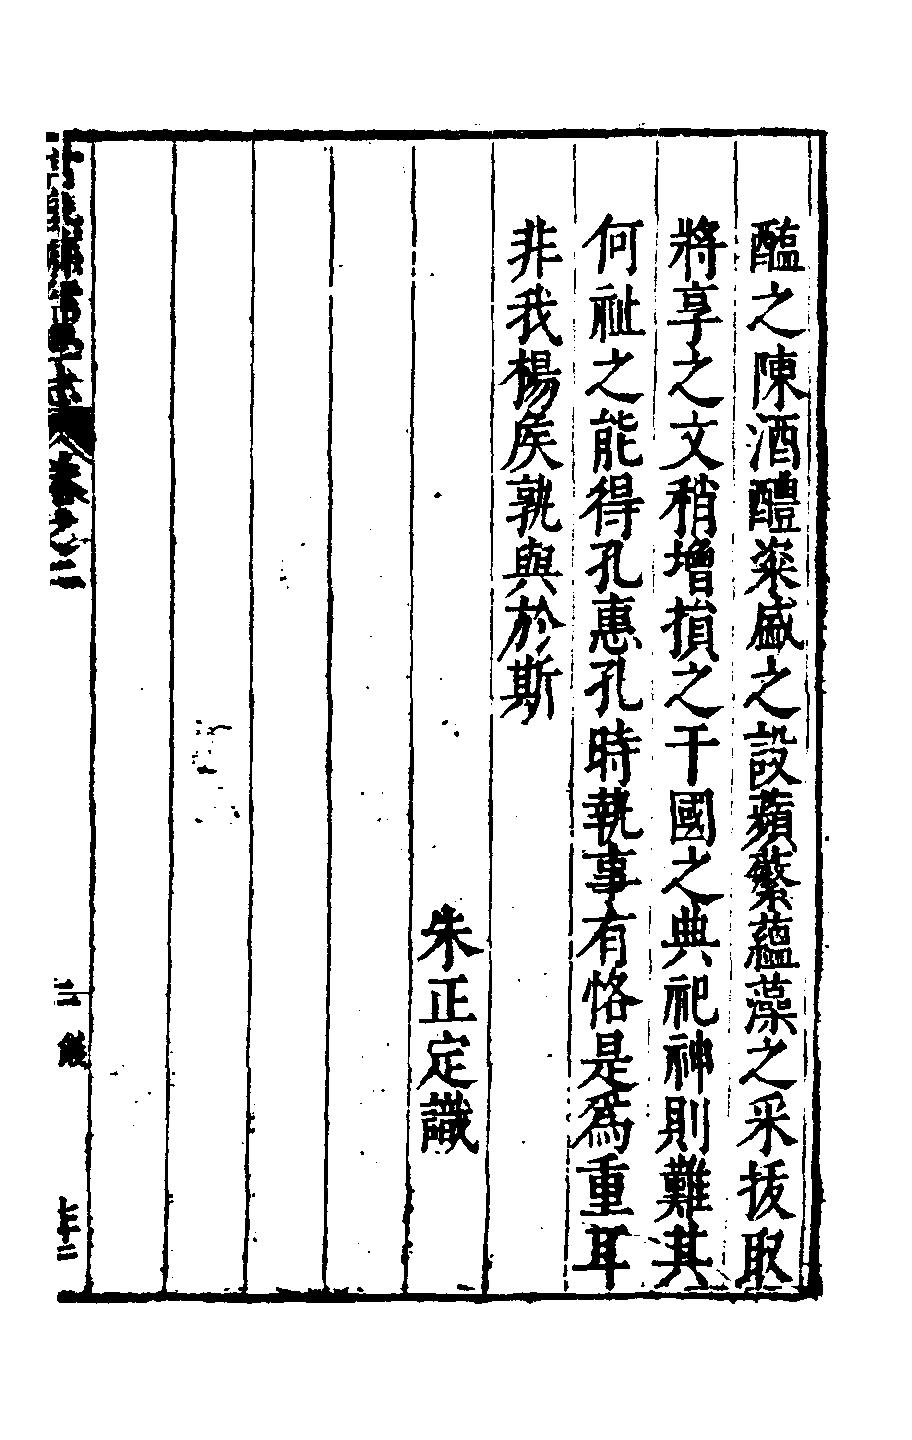 醢之陳酒醴粢盛之設蘋蘩蘊藻之采拔取
將享之文稍增損之于國之典祀神則難其
何祉之能得孔惠孔時執事有恪是為重耳
非我楊矦孰與於斯
朱正定識
卷之二
二
七十二